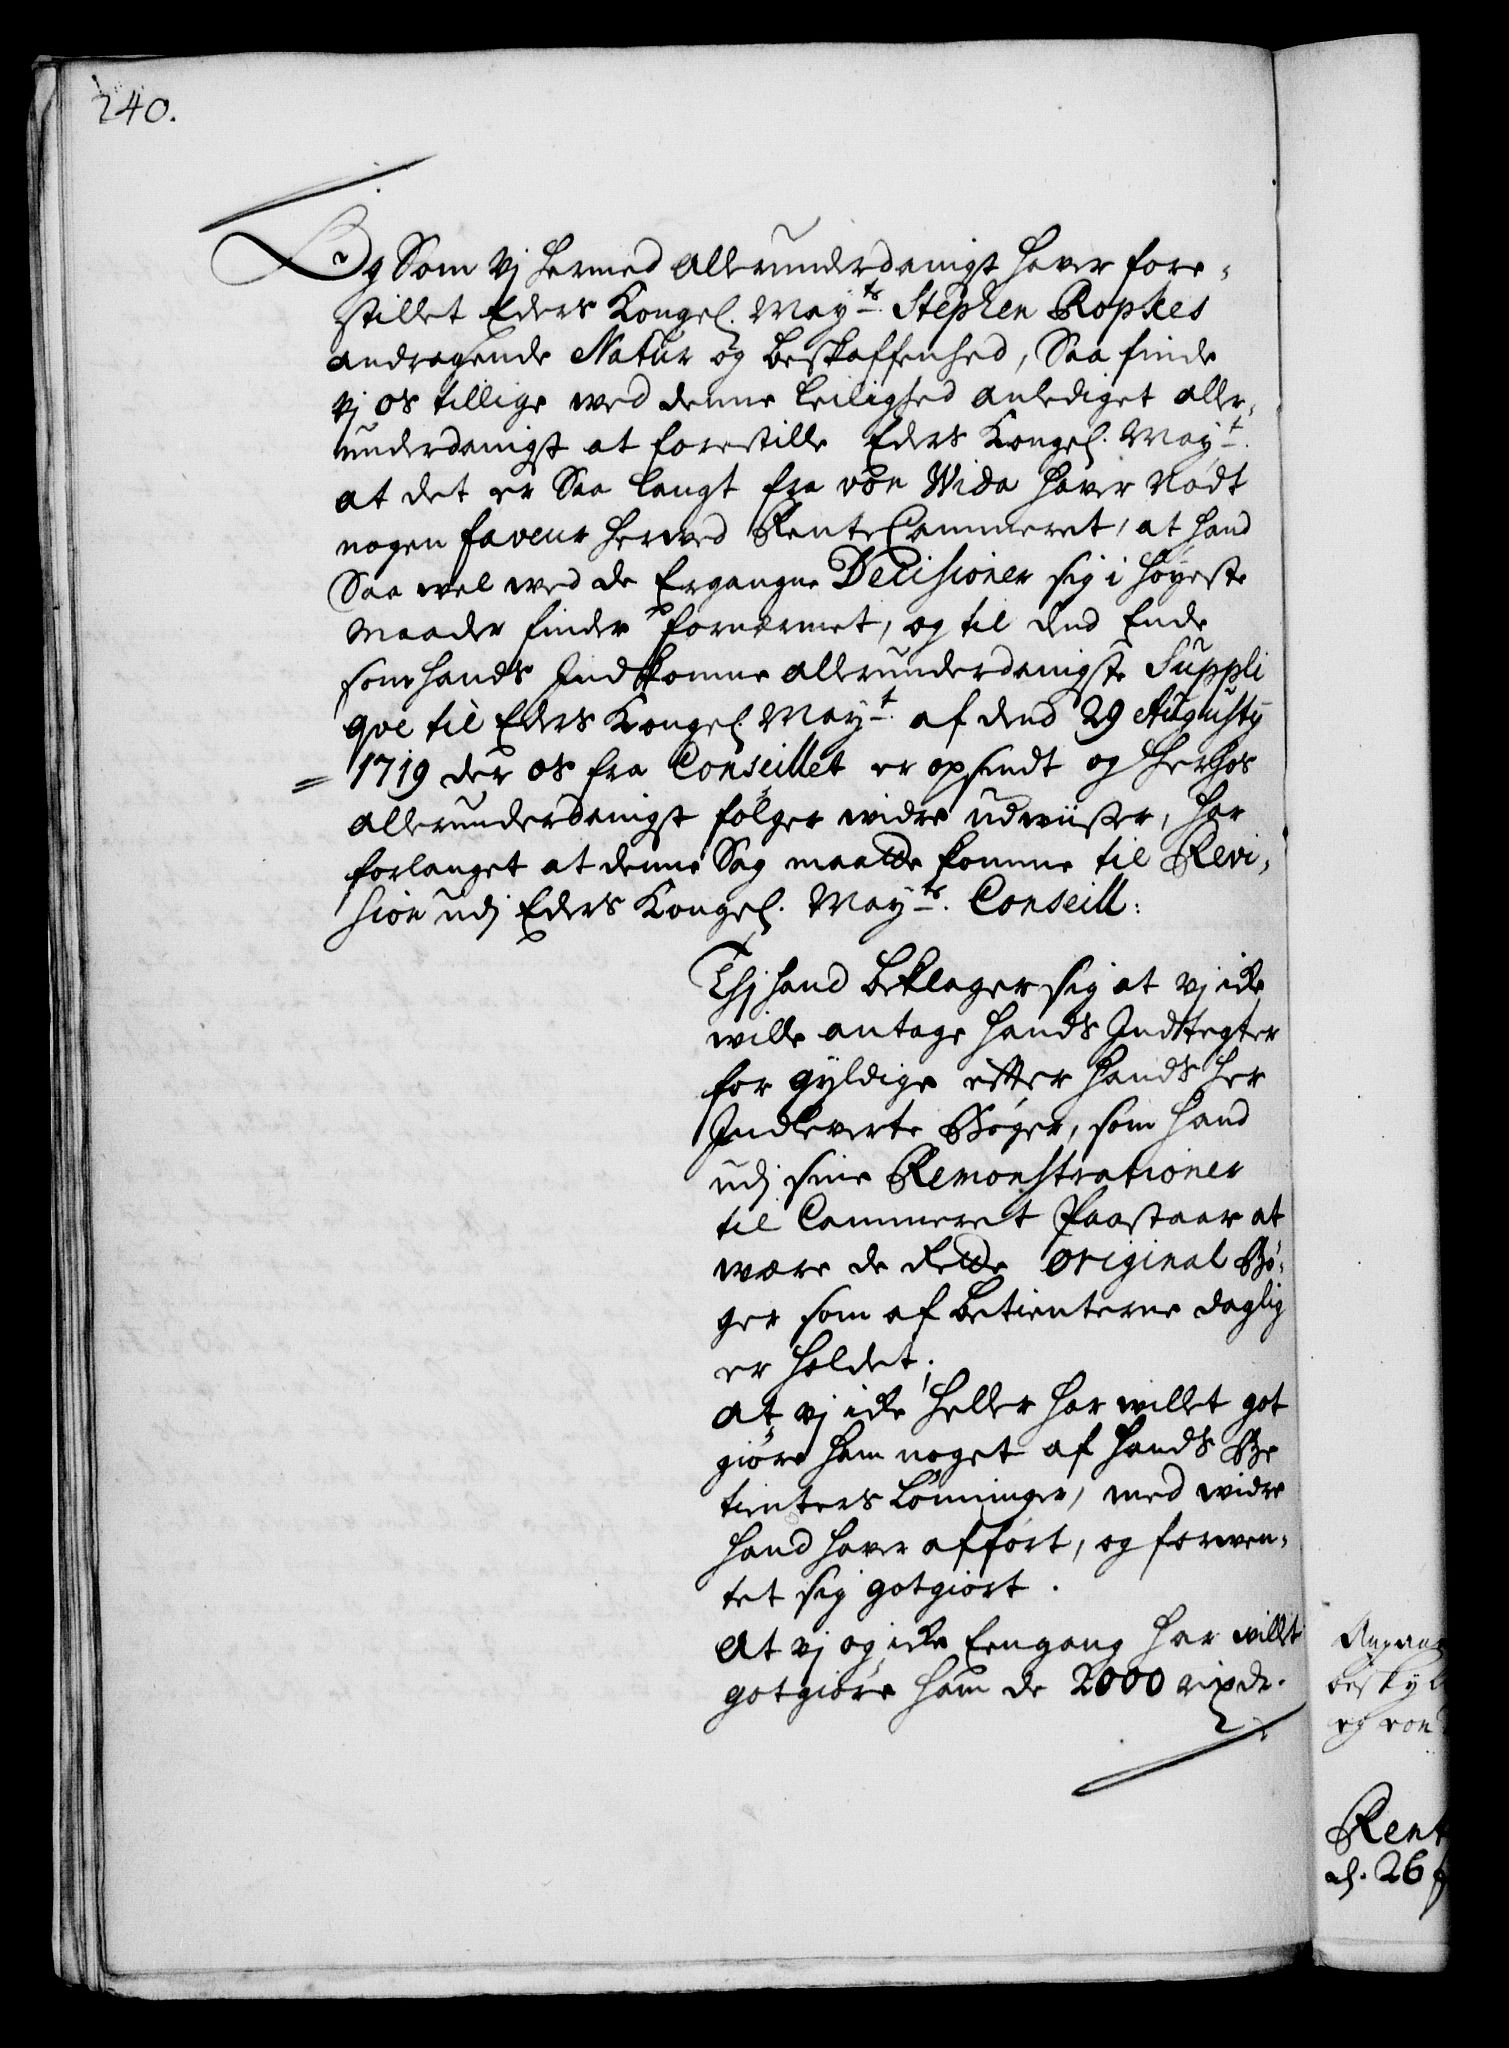 240.
Og Som vj hermed allerunderdanigst haver fore-
stillet Eders Kongel. Mayts. Stephen Ropkes
andragende Natur og beskaffenhed, Saa finde
vj os tillige wed denne leilighed anlediget aller-
underdanigst at forestille Eders Kongel. Mayt.
at det er Saa langt fra von Wida haver Nødt
nogen faveur herved RenteCammeret, at hand
Saa vel wed de Ergangne Decisioner sig i høyeste
Maader finder fornærmet, og til dend Ende
som hands Indkomne allerunderdanigste Suppli
qve til Eders Kongel. Mayt. af dend 29 Augusty
= 1719 der os fra Conseillet er opsendt og herhos
allerunderdanigst følger widre udwiiser, har
forlanget at denne Sag maatte komme til Revi-
sion udj Eders Kongel. Mayts. Conseill:
Thj hand beklager sig at vj icke
wille antage hands Indtegter
for gyldige efter hands her
Indleverte Bøger, som hand
udj sine Remonstrationer
til Cammeret Paastaar at
være de rette original Bø-
ger som af betienterne daglig
er holdet;
at vj icke heller har willet got
giøre ham noget af hands Be
tienters Lønninger, med widre
hand haver afført, og forwen-
tet sig gotgiort.
At vj og icke Eengang har willet
gotgiøre ham de 2000 rixdr.
Rent
d. 26